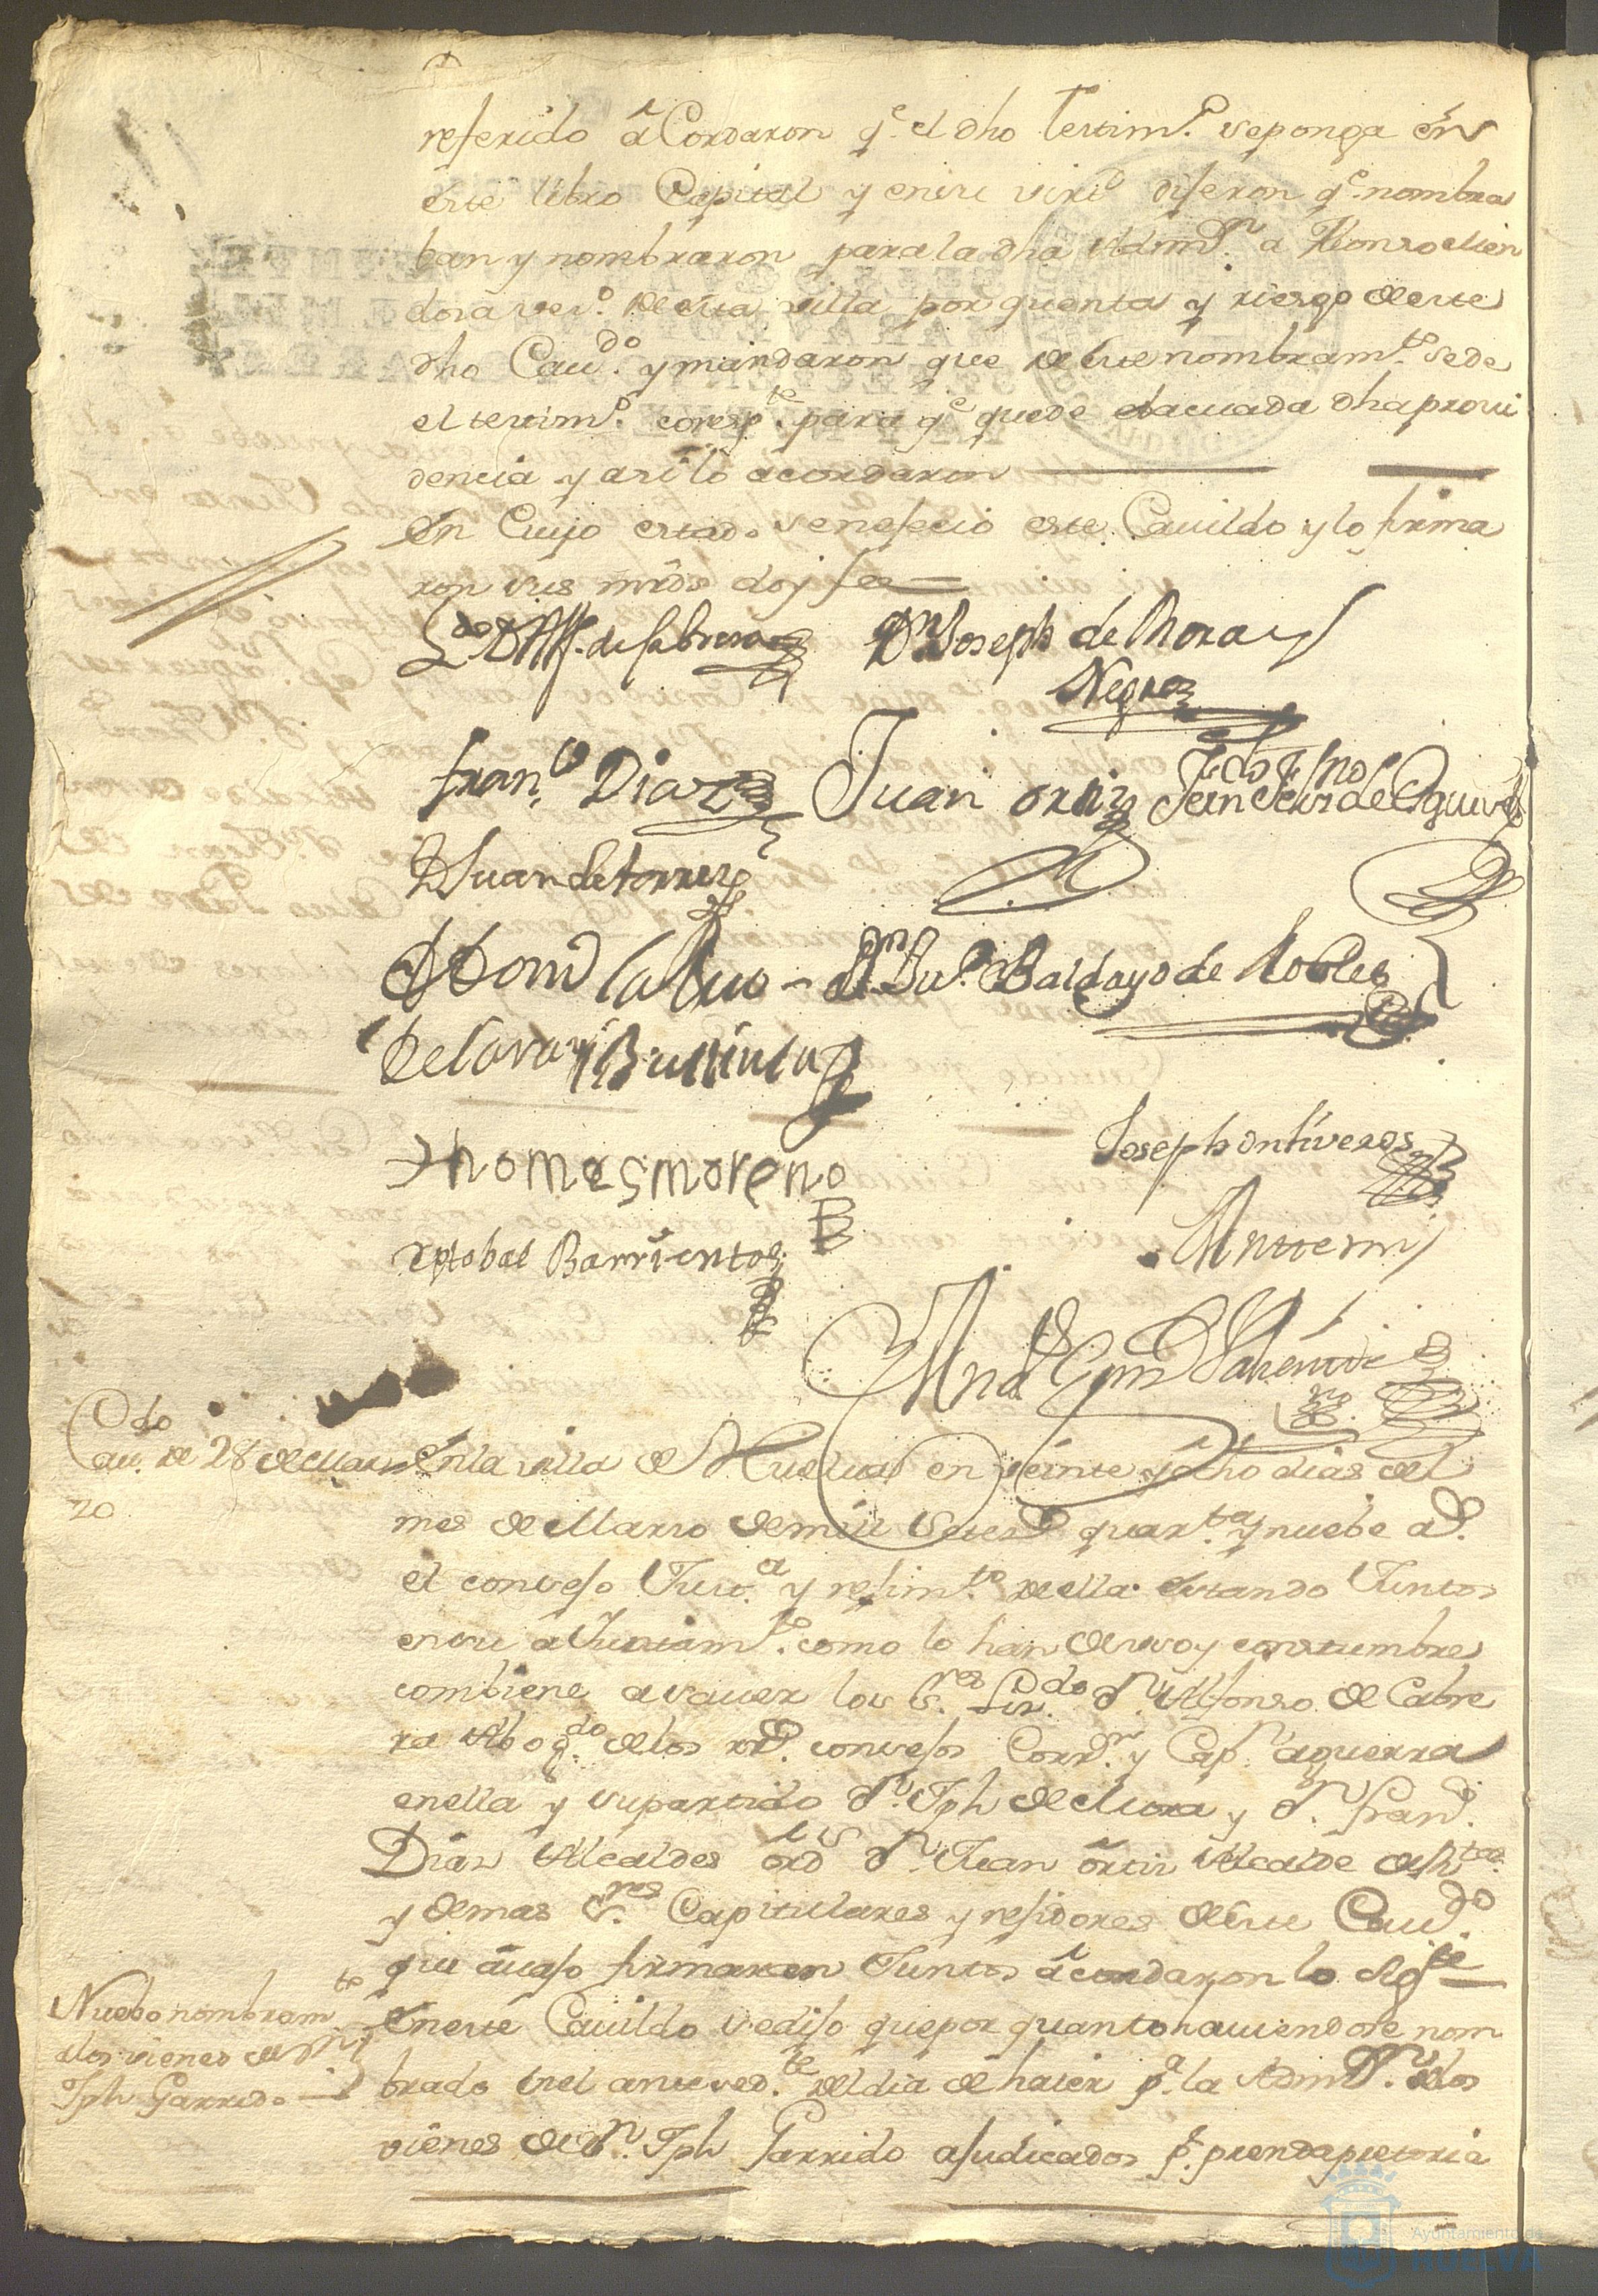 referido aCordaron q.e el dho testim.o se ponga en
este libro Capitul y en su virt.d dijeron q.e nombra
ban y nombraron para la dha Adm.on a Alonso Men
dosa vez.o de esta villa por quenta y riesgo de este
dho Cau.do y mandaron que de este nombram.to se de
el testim.o corresp.te para q.e quede ebacuada dha provi
dencia y asi lo acordaron
En Cuyo estado se nefecio este Cauildo y lo firma
ron sus mrds doy fee
L.do D. Alf. de Cabrera D.n Joseph de Mora
Negro
Fran.co Diaz Juan ortiz
D Juan de torres
D.n Ju.o Baldayo de Robles
thomas moreno Joseph ontiveros
Xptobal Barrientos Antte mi
Cau.do de 28 de Mar
zo
En la villa de Huelva en veinte y ocho dias del
mes de Marzo de mill setez.s quar.ta y nuebe a.s
el consejo Just.a y rejim.to de ella estando Juntos
en su aYuntam.to como lo han de uso y costumbre
combiene a sauer los S.res Liz.do d.n Alfonso de Cabre
ra Abog.do de los r.s consejos Corr.or y Cap.n aguerra
en ella y su partido d.n Jph de Mora y d.n Fran.co
Dias Alcaldes ord.s d.n Juan ortiz Alcalde
y demas S.res Capitulares y rejidores de este Cau.do
que auajo firmaron Juntos acordaron lo sig.te
Nuebo nombram.to
a los vienes de D.n
Jph Garrido
En este Cauildo se dijo que por quanto hauiendose nom
brado en el anteced.te del dia de haier p.a la Adm.on de los
vienes de D.n Jph Garrido ajudicados p.r prenda pretoria
Ayuntamiento de
HUELVA